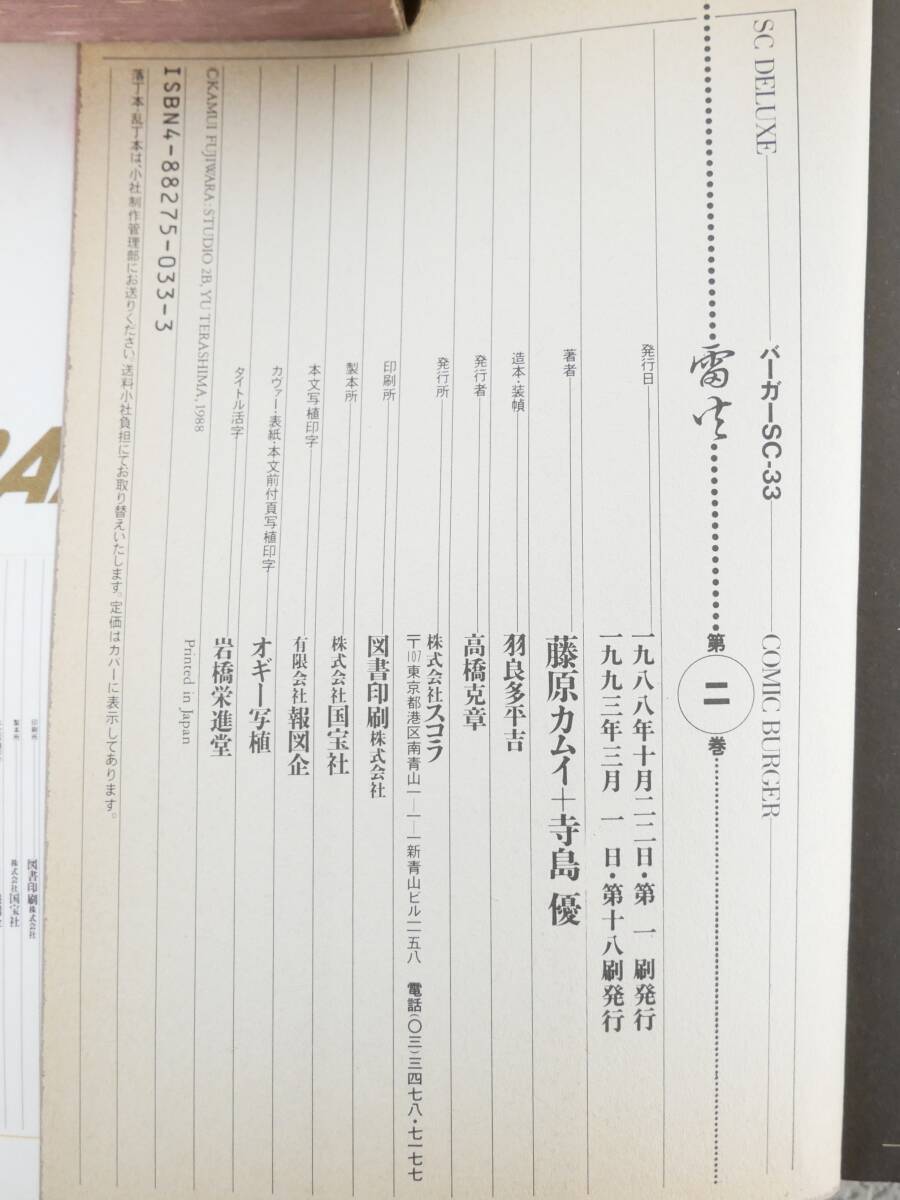 SC DELUXE
バーガーSC-33
COMIC BURGER
雷火
第二巻
発行日
一九八八年十月二二日・第一刷発行
一九九三年三月一日・第十八刷発行
著者
藤原カムイ+寺島優
造本・装幀
羽良多平吉
発行者
高橋克章
発行所
株式会社スコラ
〒107東京都港区南青山一—一—一新青山ビル一一五八 電話(〇三)三四七八・七一七七
印刷所
図書印刷株式会社
製本所
株式会社国宝社
本文写植印字
有限会社報図企
カヴァー・表紙・本文前付頁写植印字
オギー写植
タイトル活字
岩橋栄進堂
©KAMUI FUJIWARA:STUDIO 2B, YU TERASHIMA, 1988
Printed in Japan
ISBN4-88275-033-3
落丁本・乱丁本は、小社制作管理部にお送りください。送料小社負担にてお取り替えいたします。定価はカバーに表示してあります。
印刷所
図書印刷株式会社
製本所
株式会社国宝社